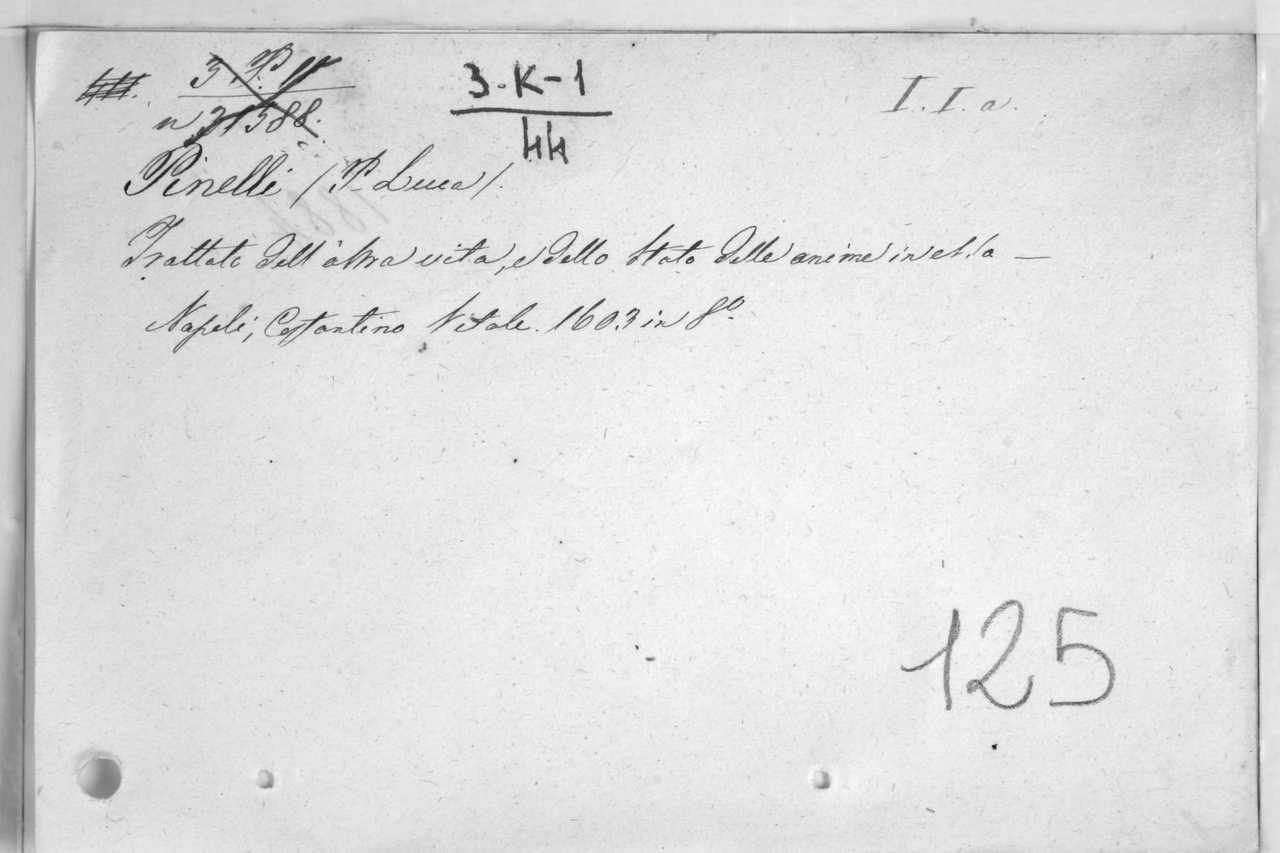 3. P.
n 21588.
3-K-1
44
I. I. a.
Pinelli (P. Luca).
Trattato dell'altra vita, e dello stato delle anime in essa —
Napoli, Costantino Vitale. 1603 in 8º.
125